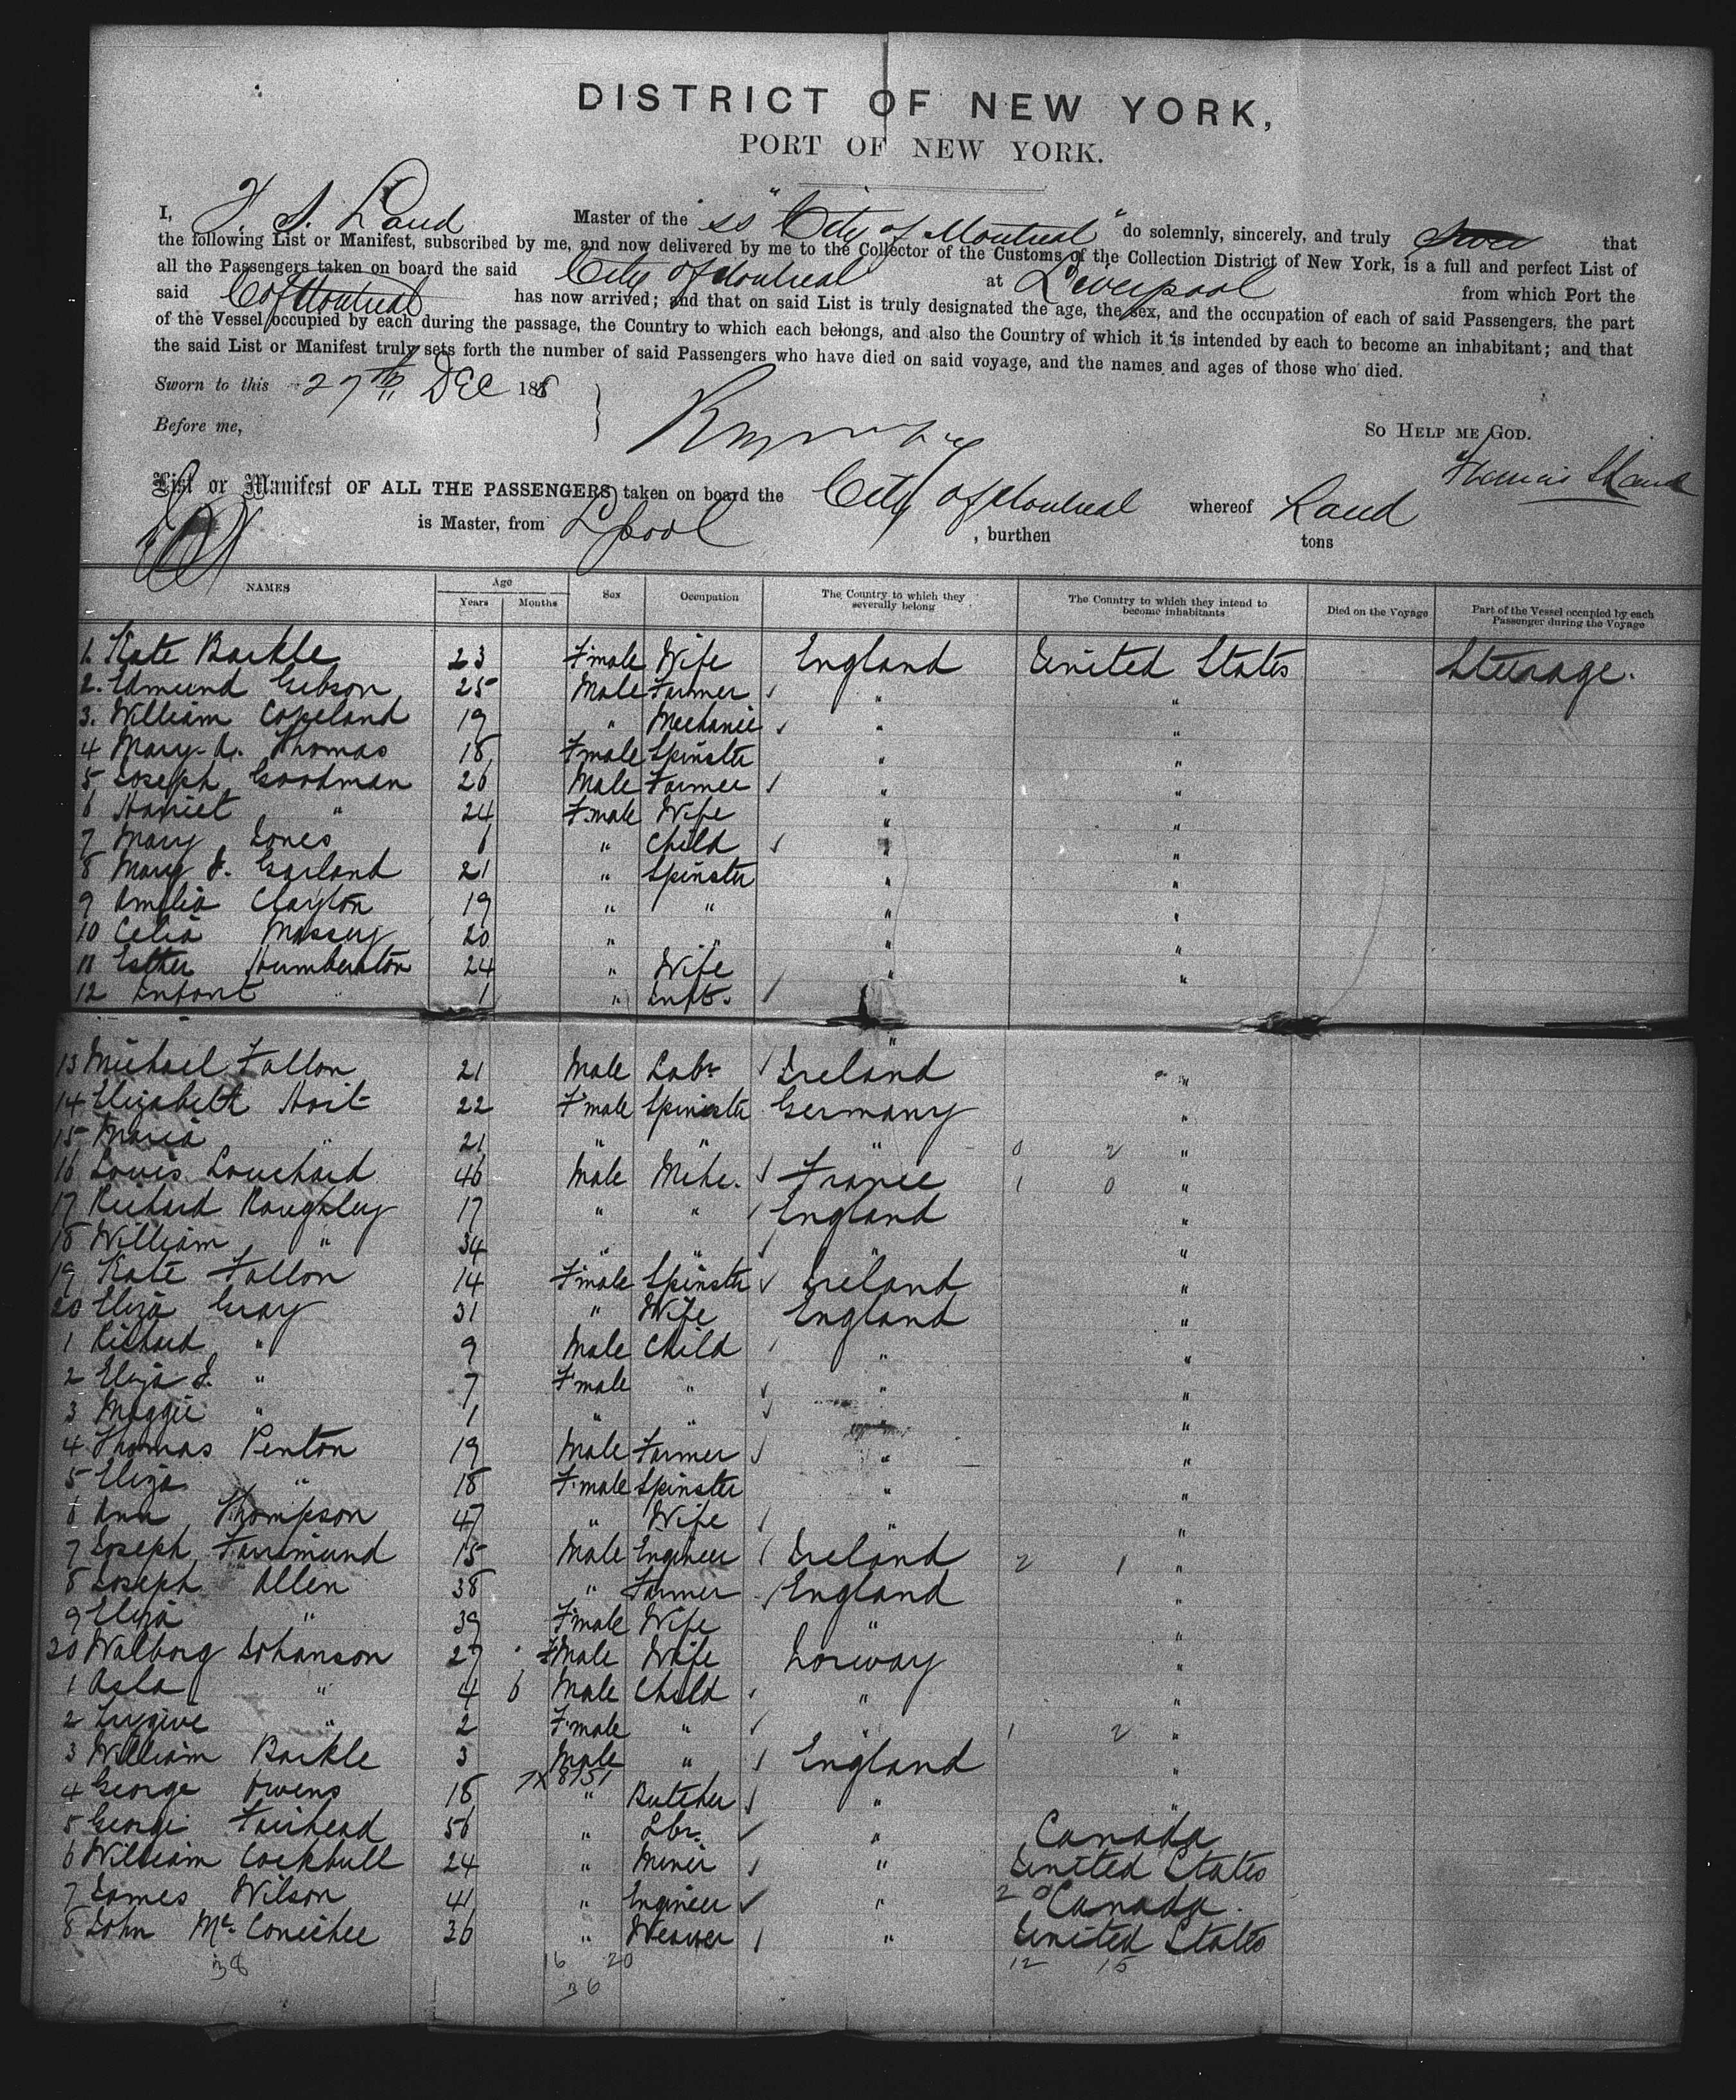 DISTRICT OF NEW YORK,
PORT OF NEW YORK.
I, F. S. Land Master of the "SS City of Montreal" do solemnly, sincerely, and truly swear that
the following List or Manifest, subscribed by me, and now delivered by me to the Collector of the Customs of the Collection District of New York, is a full and perfect List of
all the Passengers taken on board the said City of Montreal at Liverpool from which Port the
said C of Montreal has now arrived; and that on said List is truly designated the age, the sex, and the occupation of each of said Passengers, the part
of the Vessel occupied by each during the passage, the Country to which each belongs, and also the Country of which it is intended by each to become an inhabitant; and that
the said List or Manifest truly sets forth the number of said Passengers who have died on said voyage, and the names and ages of those who died.
Sworn to this 27th Dec 188
Before me,
So Help me God.
List or Manifest OF ALL THE PASSENGERS taken on board the City of Montreal whereof Land
is Master, from L'pool , burthen tons
NAMES Age Years Months Sex Occupation The Country to which they severally belong The Country to which they intend to become inhabitants Died on the Voyage Part of the Vessel occupied by each Passenger during the Voyage
1. Kate Barkle 23 Female Wife England United States Steerage.
2. Edmund Gibson 25 Male Farmer " "
3. William Copeland 19 " Mechanic " "
4 Mary A. Thomas 18 Female Spinster " "
5 Joseph Goodman 26 Male Farmer " "
6 Harriet " 24 Female Wife " "
7 Mary Jones 6 " Child " "
8 Mary J. Garland 21 " Spinster " "
9 Amelia Clayton 19 " " " "
10 Celia Massey 20 " " " "
11 Esther Humberston 24 " Wife " "
12 Infant 1 " Inft. "
13 Michael Fallon 21 Male Labr Ireland "
14 Elizabeth Hoit 22 Female Spinster Germany "
15 Maria " 21 " " " 0 2 "
16 Louis Louchard 46 Male Mche. France 1 0 "
17 Richard Roughley 17 " " England "
18 William " 34 " " " "
19 Kate Fallon 14 Female Spinster Ireland "
20 Eliza Gray 31 " Wife England "
1 Richard " 9 Male Child " "
2 Eliza J. " 7 Female " " "
3 Maggie " 1 " " " "
4 Thomas Penton 19 Male Farmer " "
5 Eliza " 18 Female Spinster " "
6 Ann Thompson 47 " Wife " "
7 Joseph Farrimund 15 Male Engineer Ireland 2 1 "
8 Joseph Allen 38 " Farmer England "
9 Eliza " 39 Female Wife " "
30 Walborg Johanson 27 Female Wife Norway "
1 Asla " 4 6 Male Child " "
2 " 2 Female " " 1 2 "
3 William Barkle 3 Male " England "
4 George Owens 18 " Butcher " "
5 George Fairhead 56 " Lbr. " Canada
6 William Cockbull 24 " Miner " United States
7 James Wilson 41 " Engineer " 2 0 Canada.
8 John Mc Conechee 36 " Weaver " United States
38 16 20 12 15
36